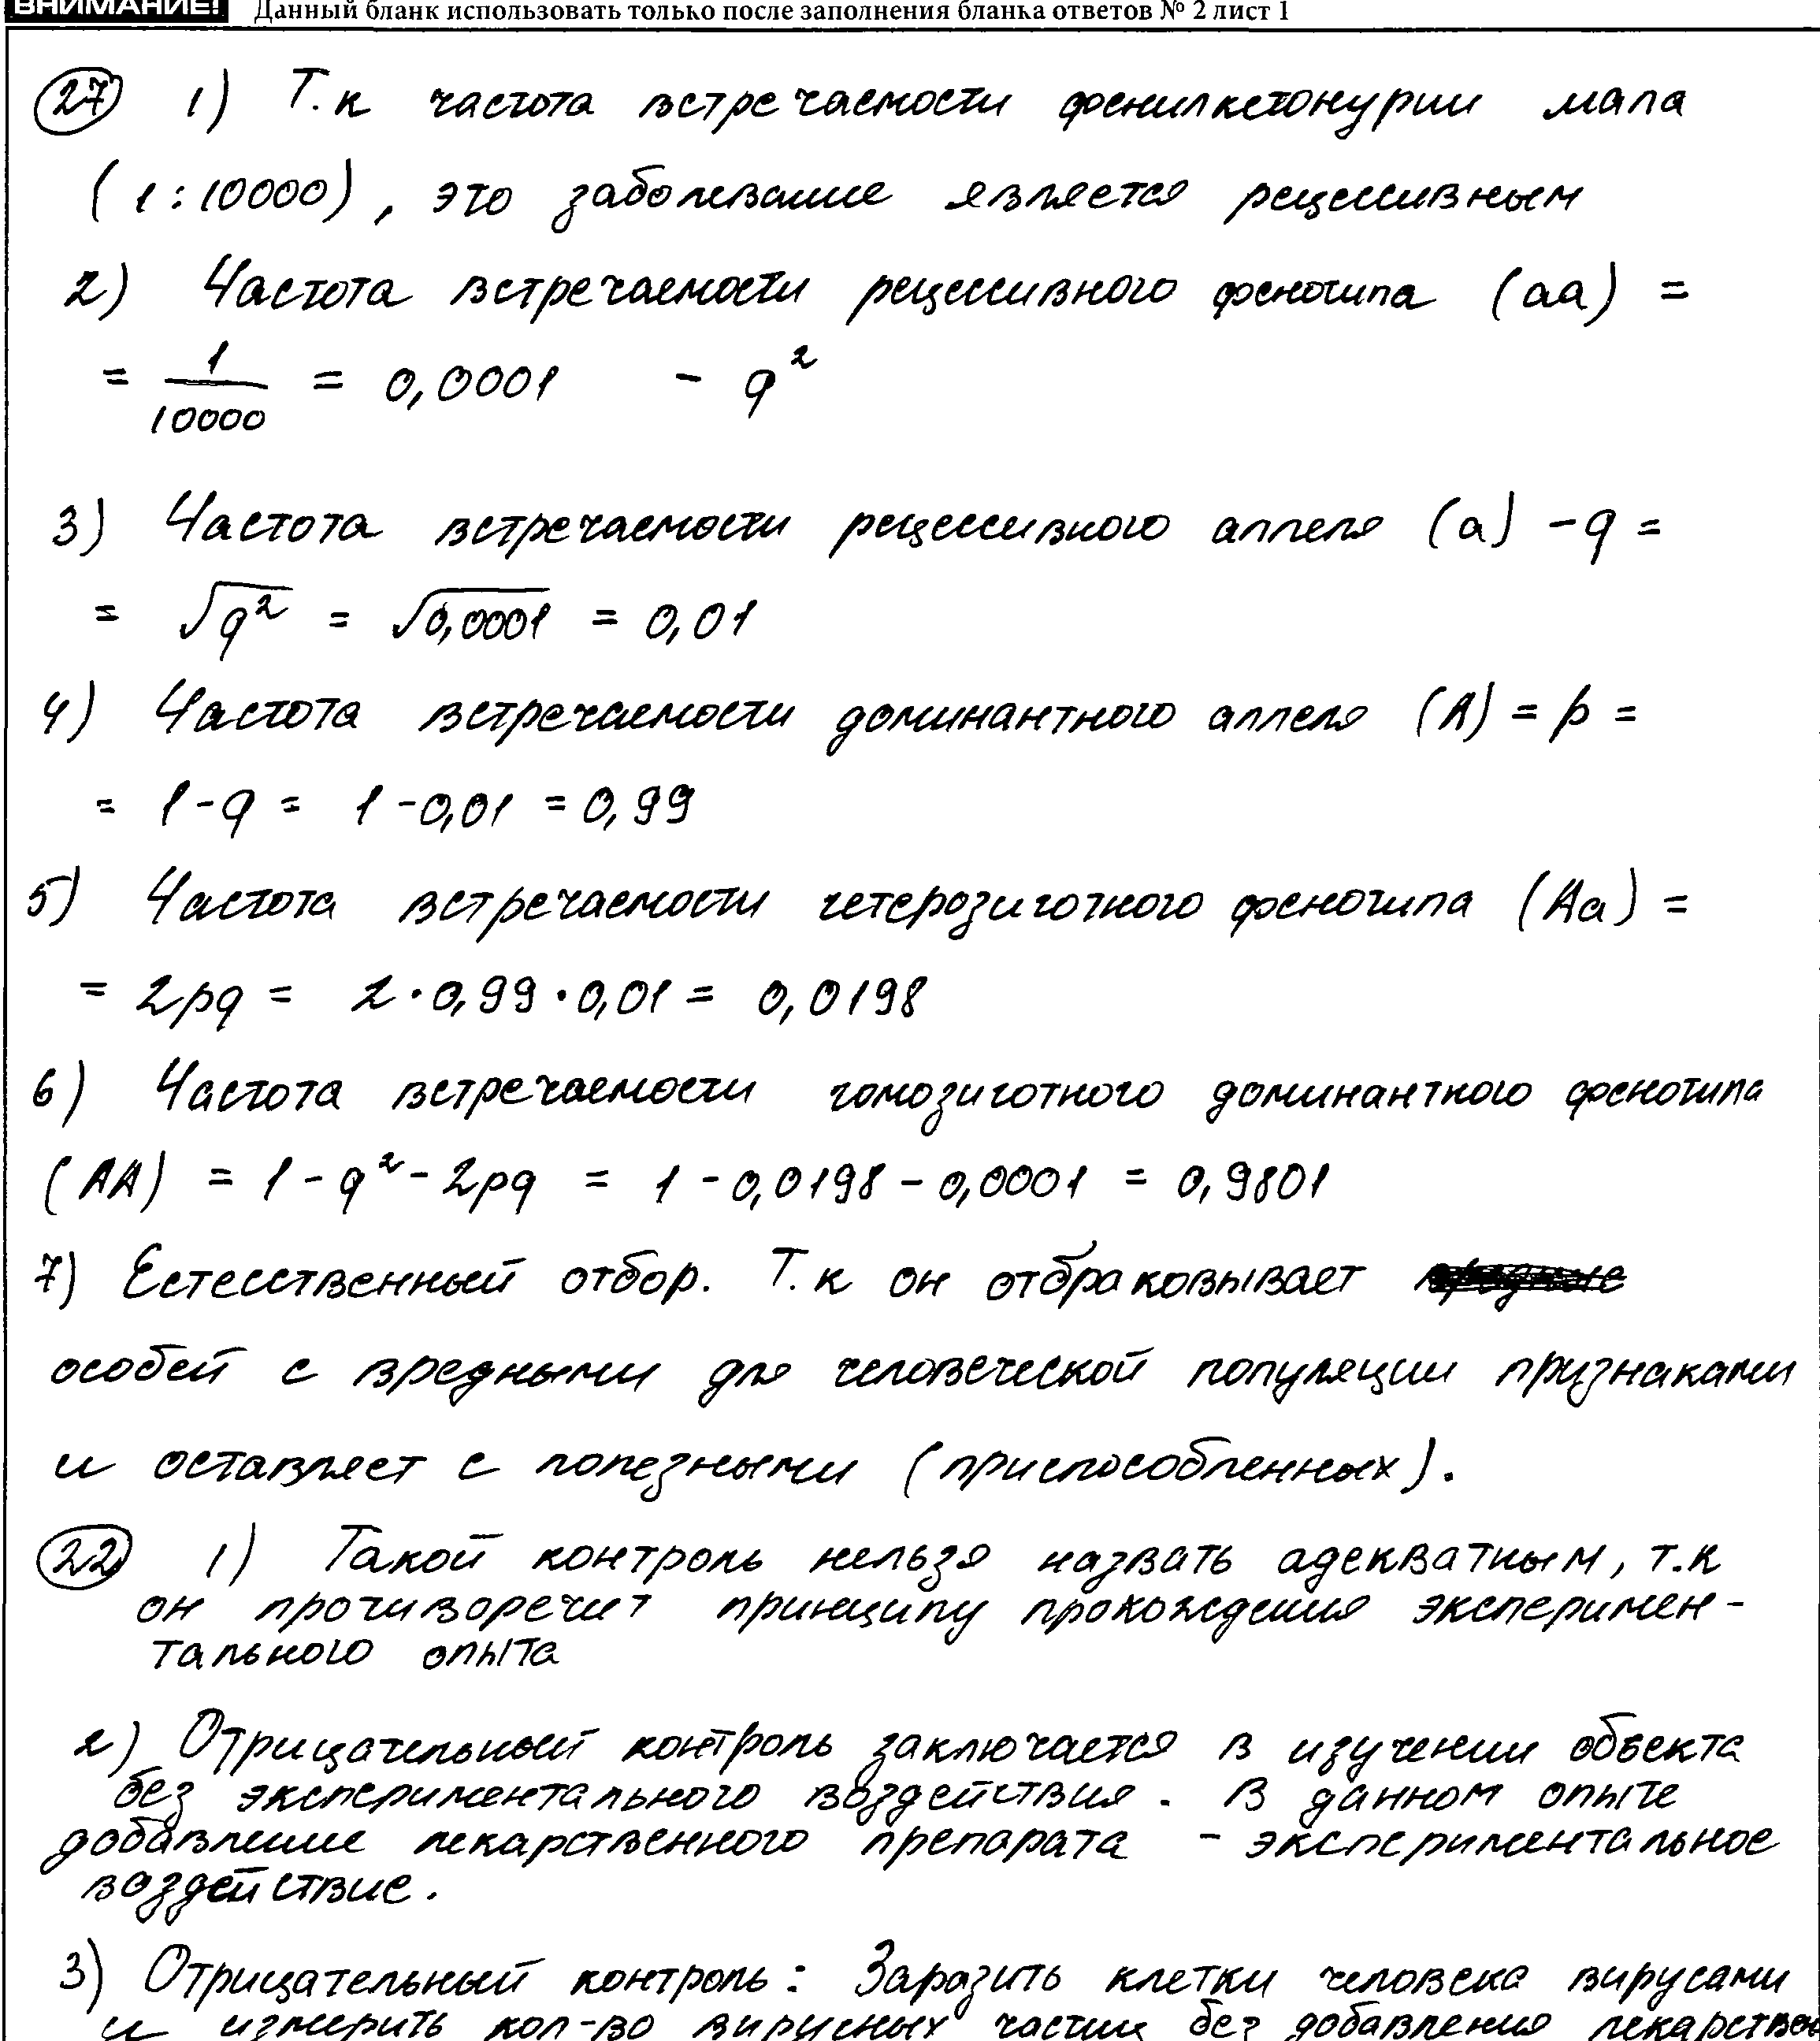 ВНИМАНИЕ! Данный бланк использовать только после заполнения бланка ответов № 2 лист 1
27 1) Т.к частота встречаемости фенилкетонурии мала
(1:10000), это заболевание является рецессивным
2) Частота встречаемости рецессивного фенотипа (aa) =
= 1/10000 = 0,0001 - q²
3) Частота встречаемости рецессивного аллеля (a) - q =
= √q² = √0,0001 = 0,01
4) Частота встречаемости доминантного аллеля (A) = p =
= 1-q = 1-0,01 = 0,99
5) Частота встречаемости гетерозиготного фенотипа (Aa) =
= 2pq = 2·0,99·0,01 = 0,0198
6) Частота встречаемости гомозиготного доминантного фенотипа
(AA) = 1 - q² - 2pq = 1 - 0,0198 - 0,0001 = 0,9801
7) Естесственный отбор. Т.к он отбраковывает
особей с вредными для человеческой популяции признаками
и оставляет с полезными (приспособленных).
22 1) Такой контроль нельзя назвать адекватным, т.к
он противоречит принципу прохождения эксперимен-
тального опыта
2) Отрицательный контроль заключается в изучении объекта
без экспериментального воздействия. В данном опыте
добавление лекарственного препарата - экспериментальное
воздействие.
3) Отрицательный контроль: Заразить клетки человека вирусами
и измерить кол-во вирусных частиц без добавления лекарствен